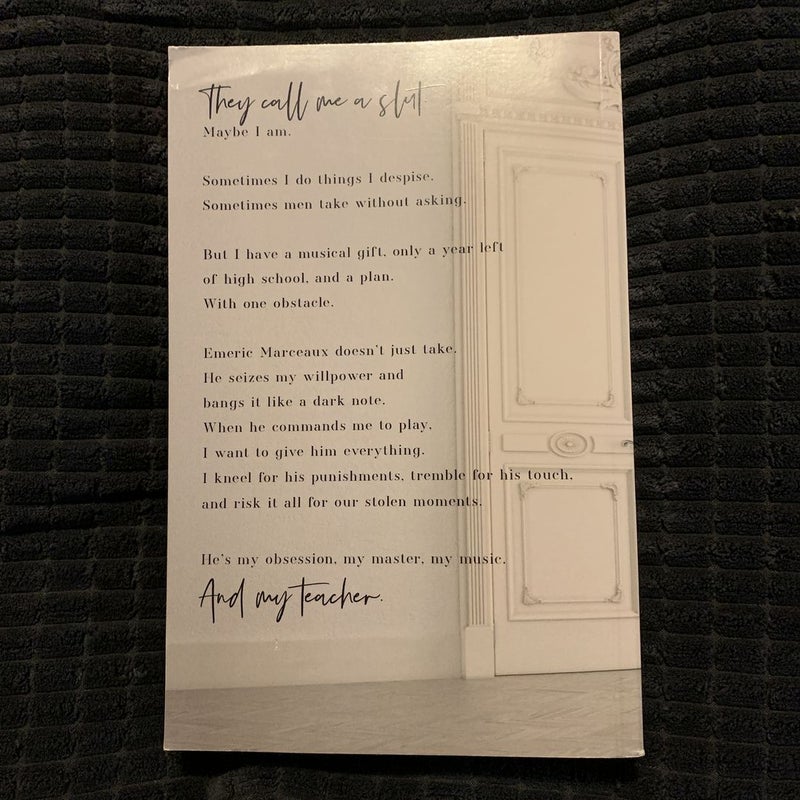 They call me a slut.
Maybe I am.
Sometimes I do things I despise.
Sometimes men take without asking.
But I have a musical gift, only a year left
of high school, and a plan.
With one obstacle.
Emeric Marceaux doesn't just take.
He seizes my willpower and
bangs it like a dark note.
When he commands me to play,
I want to give him everything.
I kneel for his punishments, tremble for his touch,
and risk it all for our stolen moments.
He's my obsession, my master, my music.
And my teacher.